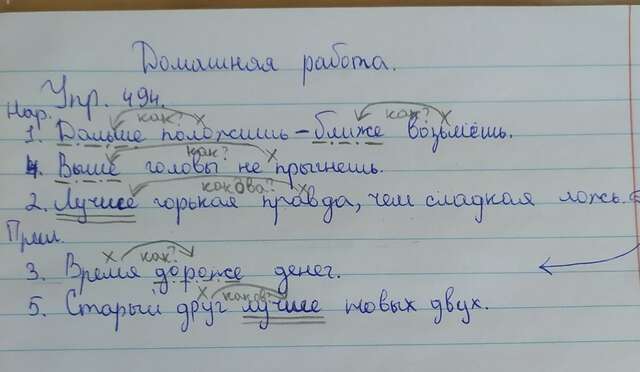 Домашная работа.
Упр. 494.
Нар.
как? х как? х
1. Дальше положишь – ближе возьмёшь.
как? х
4. Выше головы не прыгнешь.
какова? х
2. Лучше горькая правда, чем сладкая ложь.
Прил.
х как?
3. Время дороже денег.
х каков?
5. Старый друг лучше новых двух.